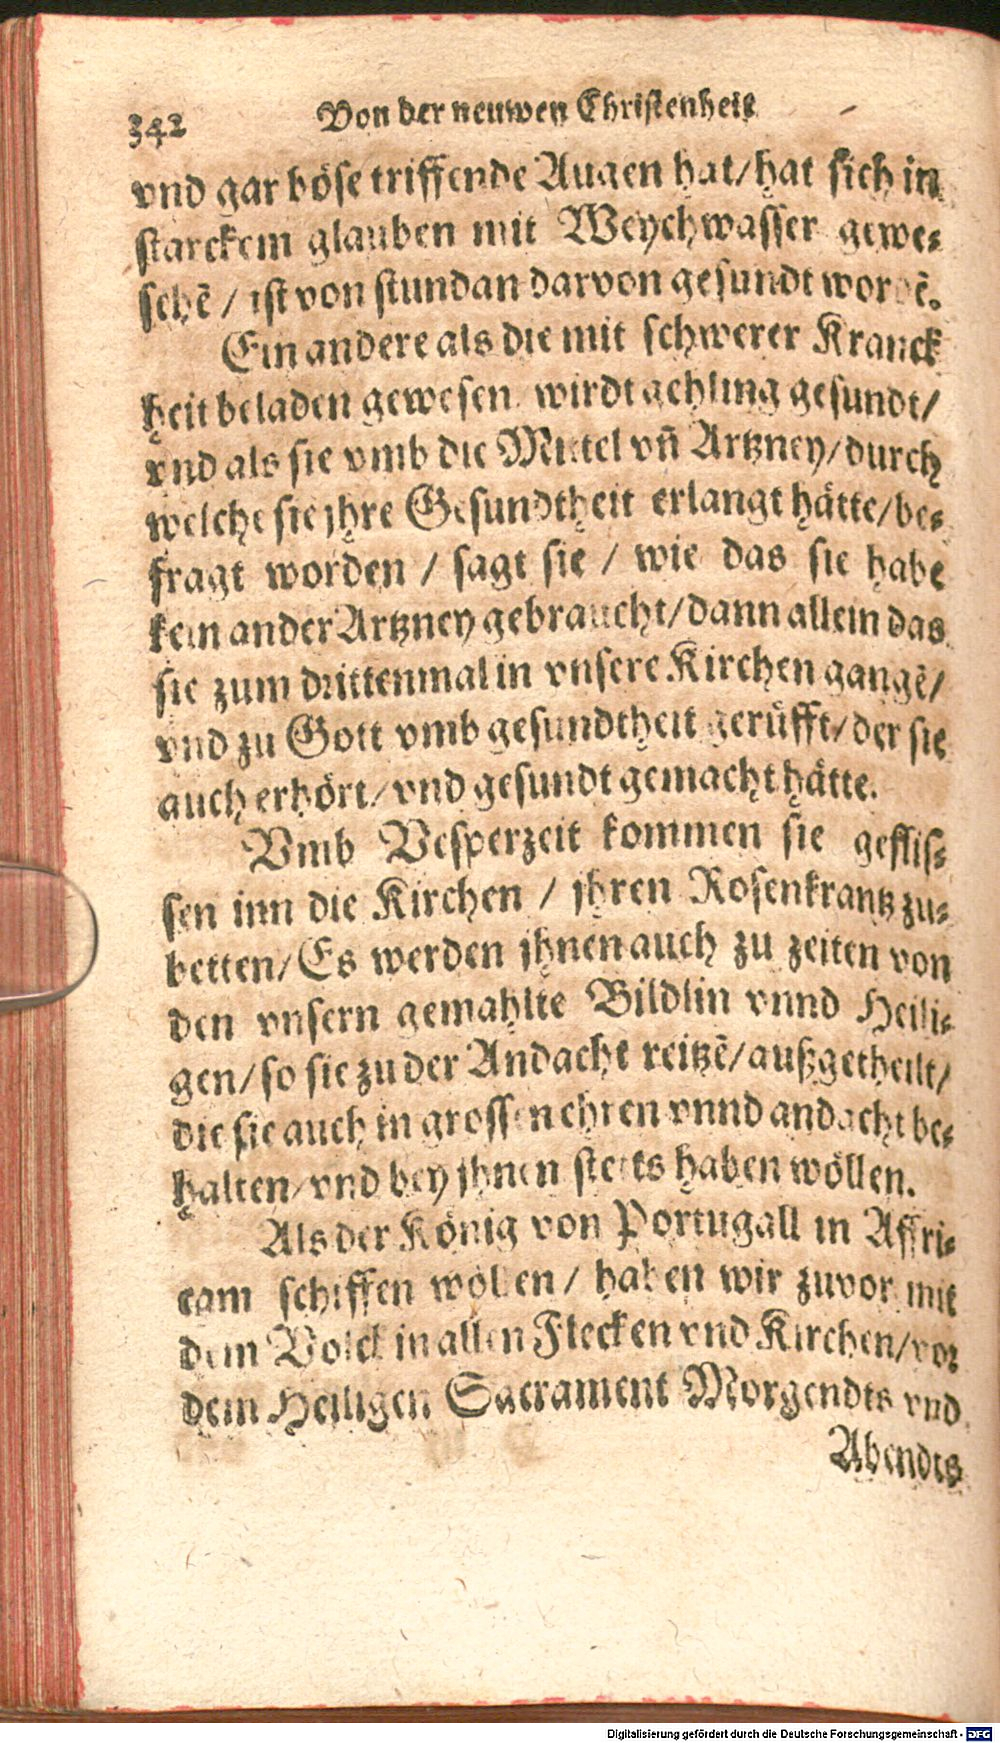 342 Von der neuwen Christenheit
vnd gar böse trieffende Augen hat/hat sich in
starckem glauben mit Weychwasser gewe-
schẽ / ist von stundan darvon gesundt wordẽ.
Ein andere als die mit schwerer Kranck
heit beladen gewesen wirdt gehling gesundt/
vnd als sie vmb die Mittel vñ Artzney/durch
welche sie jhre Gesundtheit erlangt hätte/be-
fragt worden / sagt sie / wie das sie habe
kein ander Artzney gebraucht/dann allein das
sie zum drittenmal in vnsere Kirchen gangẽ/
vnd zu Gott vmb gesundtheit gerüfft/der sie
auch erhört/vnd gesundt gemacht hätte.
Vmb Vesperzeit kommen sie geflis-
sen inn die Kirchen / jhren Rosenkrantz zu-
betten/Es werden jhnen auch zu zeiten von
den vnsern gemahlte Bildlin vnnd Heili-
gen/so sie zu der Andacht reitzẽ/außgetheilt/
die sie auch in grossen ehren vnnd andacht be-
halten/vnd bey jhnen stetts haben wöllen.
Als der König von Portugall in Affri-
cam schiffen wöllen/ haben wir zuvor mit
dem Volck in allen Flecken vnd Kirchen/vor
dem Heiligen Sacrament Morgendts vnd
Abendts
Digitalisierung gefördert durch die Deutsche Forschungsgemeinschaft - DFG